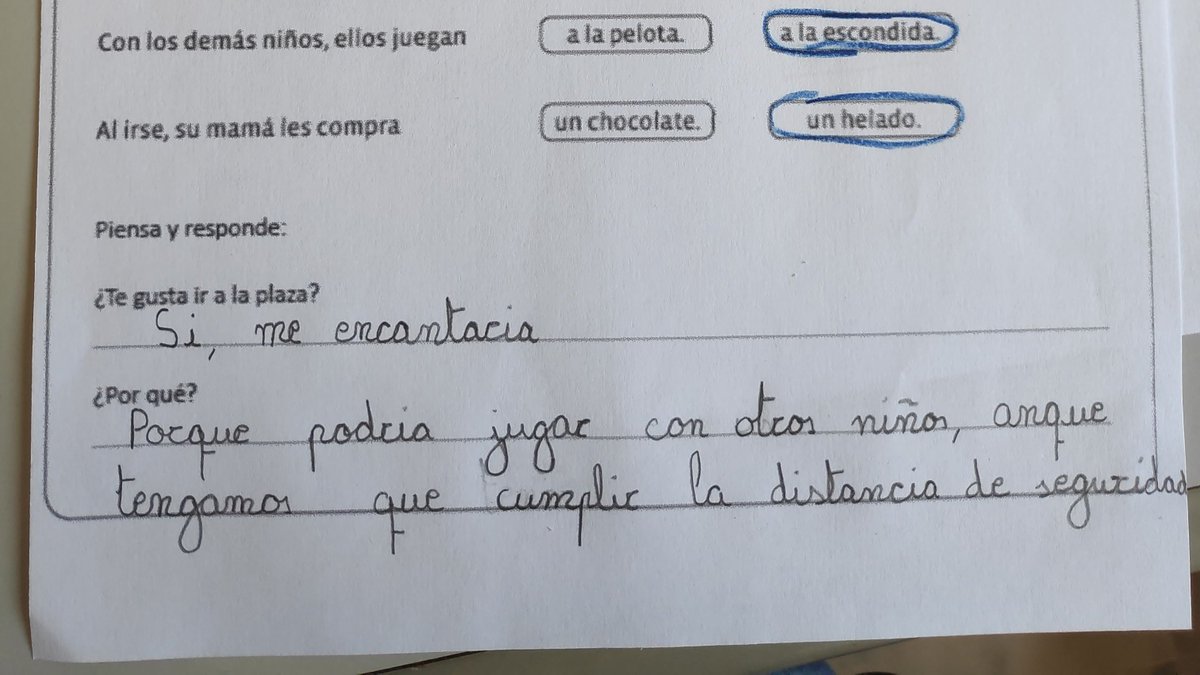 Con los demás niños, ellos juegan a la pelota. a la escondida.
Al irse, su mamá les compra un chocolate. un helado.
Piensa y responde:
¿Te gusta ir a la plaza?
Si, me encantaria
¿Por qué?
Porque podria jugar con otros niños, anque
tengamos que cumplir la distancia de seguridad